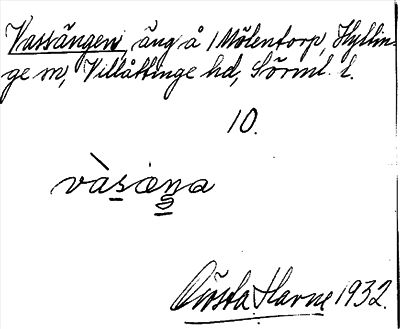 Vassängen, äng å 1 Mölentorp, Hyllin-
ge sn, Villåttinge hd, Sörml. l.
10.
vàsæŋa
Gösta Harne 1932.